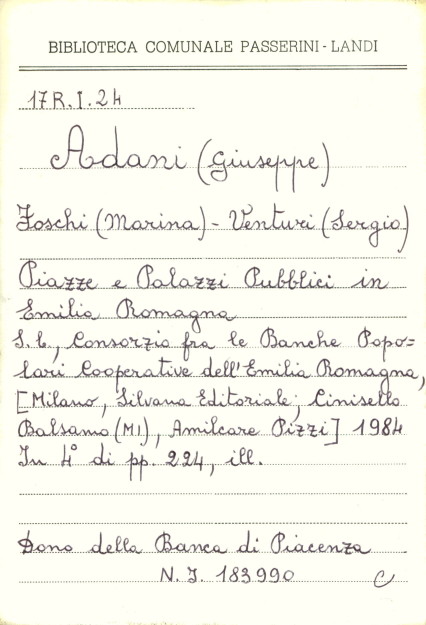 BIBLIOTECA COMUNALE PASSERINI-LANDI
17R.I.24
Adani (Giuseppe)
Foschi (Marina) - Venturi (Sergio)
Piazze e Palazzi Pubblici in
Emilia Romagna
S. l., Consorzio fra le Banche Popo=
lari Cooperative dell'Emilia Romagna,
[Milano, Silvana Editoriale; Cinisello
Balsamo (MI), Amilcare Pizzi] 1984
In 4° di pp. 224, ill.
Dono della Banca di Piacenza
N. I. 183990 C